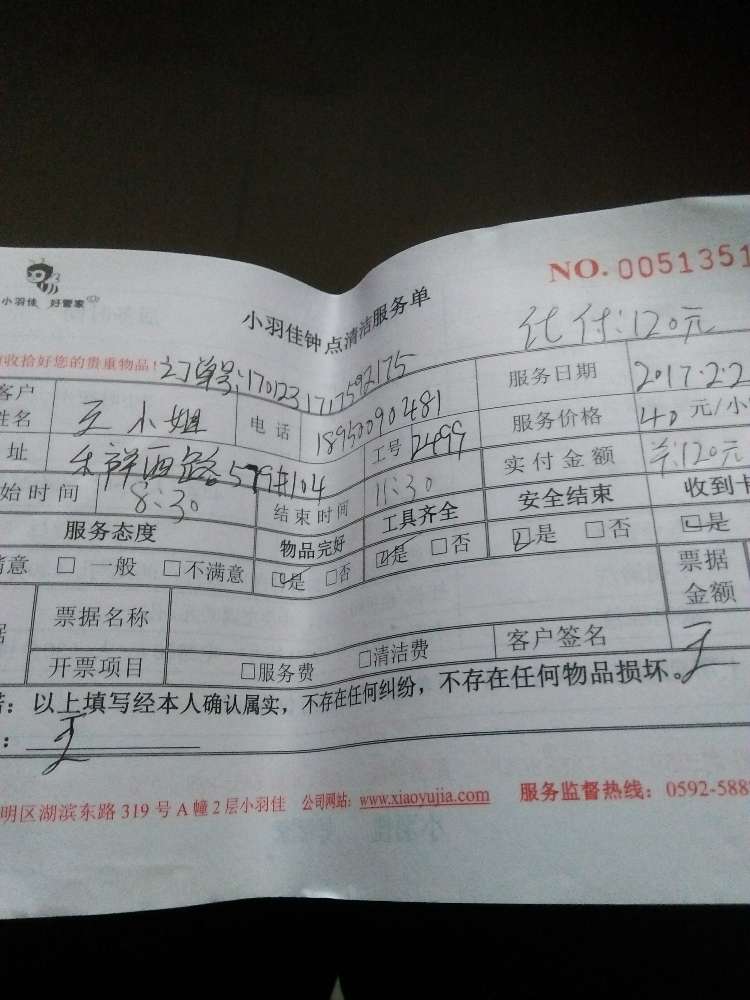 NO. 0051351
小羽佳 好管家
小羽佳钟点清洁服务单
代付:120元
收拾好您的贵重物品!
订单号:1701231717592175
客户姓名 王小姐 电话 18950090481 服务日期 2017.2.2
址 禾祥西路579#104 工号 2499 服务价格 40元/小
始时间 8:30 结束时间 11:30 实付金额 共:120元
服务态度 物品完好 工具齐全 安全结束 收到卡
满意 □ 一般 □不满意 ☑是 □否 ☑是 □否 ☑是 □否 ☑是
票据名称 票据金额
开票项目 □服务费 □清洁费 客户签名 王
:以上填写经本人确认属实,不存在任何纠纷,不存在任何物品损坏。
: 王
明区湖滨东路319号A幢2层小羽佳 公司网站:www.xiaoyujia.com 服务监督热线:0592-588